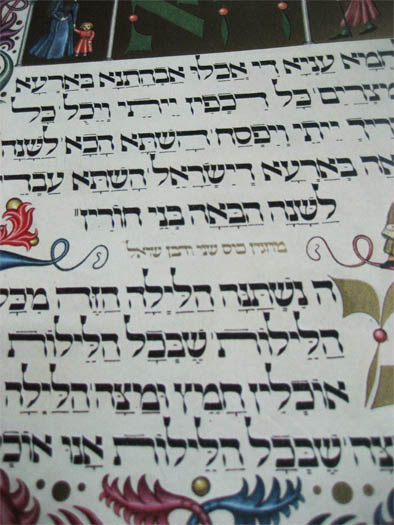 חמא עניא די אכלו אבהתנא בארעא
מצרים כל דכפין ייתי ויכל כל
ריך ייתי ויפסח השתא הכא לשנה
אה בארעא דישראל השתא עבדי
לשנה הבאה בני חורין
מוזגין כוס שני והבן שואל
ה נשתנה הלילה הזה מכל
הלילות שבכל הלילות
אוכלין חמץ ומצה הלילה
צה שבכל הלילות אנו אוכ